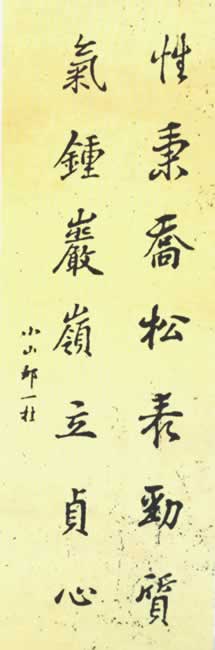 性秉喬松表勁質
氣鍾巖嶺立貞心
小山鄒一桂